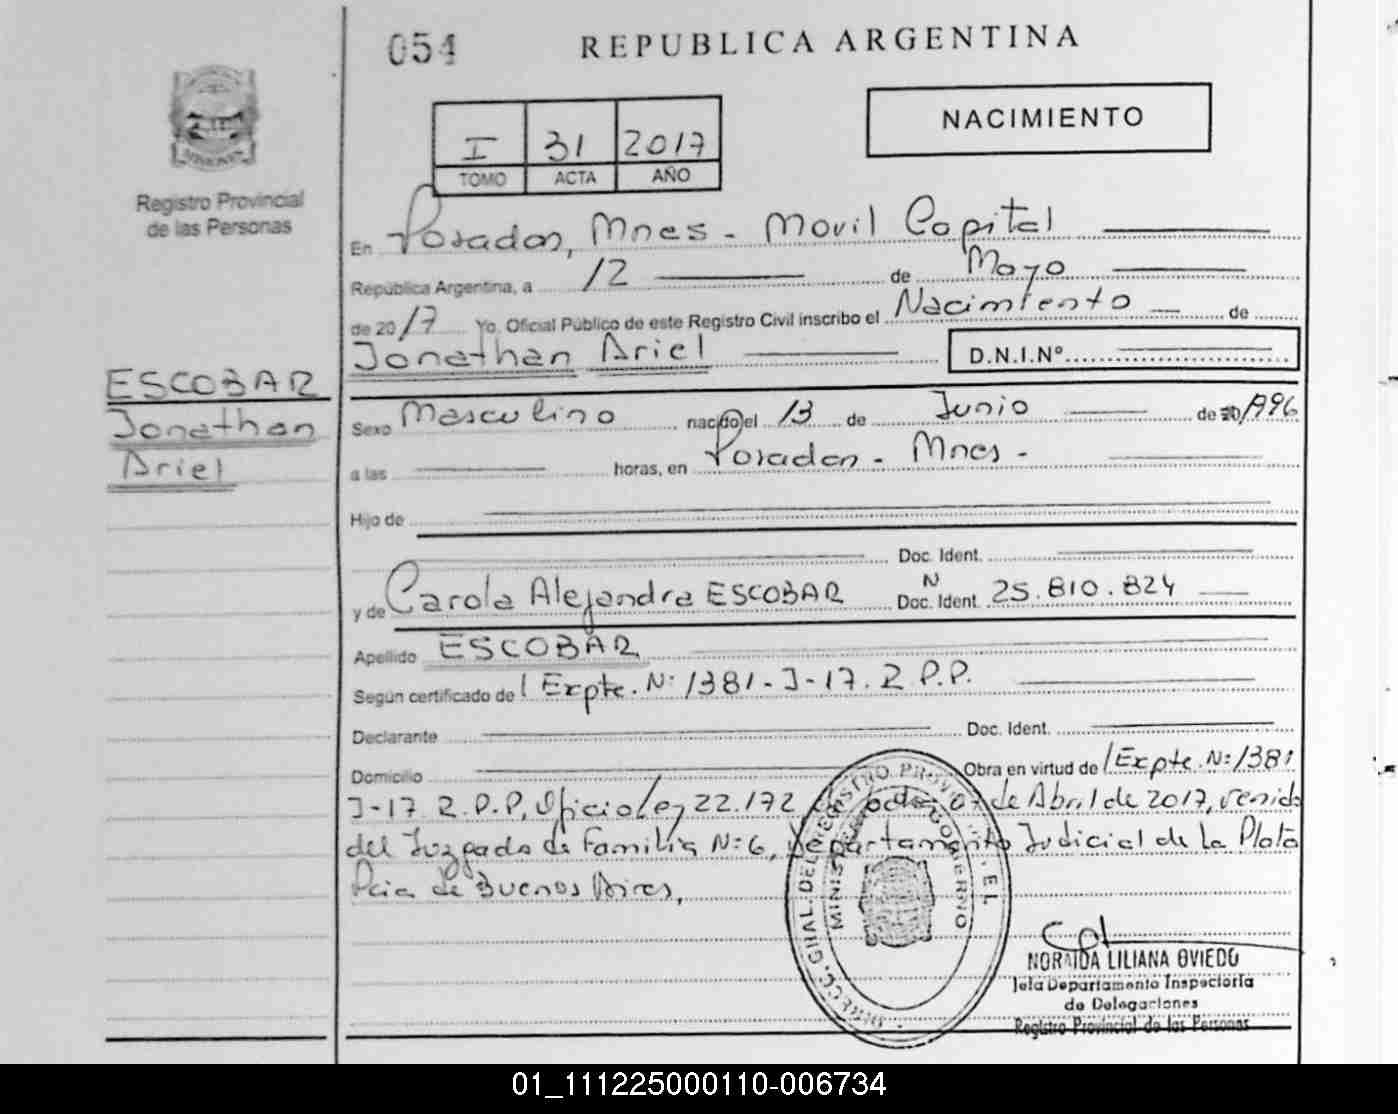 054
REPUBLICA ARGENTINA
NACIMIENTO
I 31 2017
TOMO ACTA AÑO
MISIONES
Registro Provincial
de las Personas
En Posadas, Mnes - Movil Capital
República Argentina, a 12 de Mayo
de 2017 Yo, Oficial Público de este Registro Civil inscribo el Nacimiento de
Jonathan Ariel D.N.I.Nº
ESCOBAR
Jonathan
Ariel
Sexo Masculino nacido el 13 de Junio de 20/1996
a las horas, en Posadas - Mnes -
Hijo de
Doc. Ident.
y de Carola Alejandra ESCOBAR N Doc. Ident. 25.810.824
Apellido ESCOBAR
Según certificado de / Expte. Nº 1381-J-17. R.P.P.
Declarante Doc. Ident.
Domicilio Obra en virtud de / Expte. Nº 1381
J-17 R.P.P, Oficio Ley 22.172 de 07 de Abril de 2017, venido
del Juzgado de Familia Nº 6, Departamento Judicial de La Plata
Pcia de Buenos Aires,
DIRECC. GRAL. DEL REGISTRO PROVI
MINIS GOBIERNO
NORAIDA LILIANA OVIEDO
Jefa Departamento Inspectoría
de Delegaciones
Registro Provincial de las Personas
01_111225000110-006734